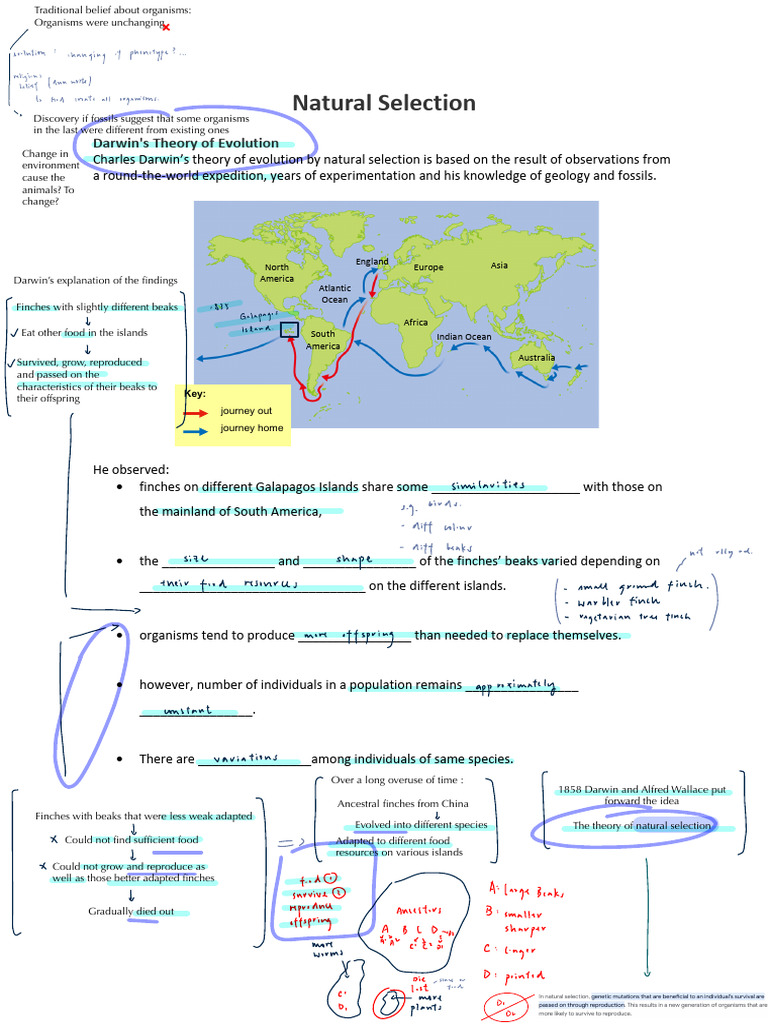 Traditional belief about organisms:
Organisms were unchanging
evolution : changing of phenotype? ...
religious
belief
Discovery if fossils suggest that some organisms
in the last were different from existing ones
Change in
environment
cause the
animals? To
change?
Natural Selection
Darwin's Theory of Evolution
Charles Darwin's theory of evolution by natural selection is based on the result of observations from
a round-the-world expedition, years of experimentation and his knowledge of geology and fossils.
Darwin's explanation of the findings
Finches with slightly different beaks
Eat other food in the islands
Survived, grow, reproduced
and passed on the
characteristics of their beaks to
their offspring
North
America
England
Europe
Asia
Atlantic
Ocean
Africa
South
America
Indian Ocean
Australia
Galapagos
island
Key:
journey out
journey home
He observed:
• finches on different Galapagos Islands share some similarities with those on
the mainland of South America,
e.g. birds.
- diff colour
- diff beaks
• the size and shape of the finches' beaks varied depending on
their food resources on the different islands.
- small ground finch.
- warbler finch
- vegetarian tree finch
• organisms tend to produce more offspring than needed to replace themselves.
• however, number of individuals in a population remains approximately
constant.
• There are variations among individuals of same species.
Finches with beaks that were less weak adapted
x Could not find sufficient food
x Could not grow and reproduce as
well as those better adapted finches
Gradually died out
=>
Over a long overuse of time :
Ancestral finches from China
Evolved into different species
Adapted to different food
resources on various islands
1858 Darwin and Alfred Wallace put
forward the idea
The theory of natural selection
food
survive
reproduce
offspring
Ancestors
A B C D
A: large beaks
B: smaller
sharper
C: longer
D: pointed
more
worms
C.
D.
more
plants
In natural selection, genetic mutations that are beneficial to an individual's survival are
passed on through reproduction. This results in a new generation of organisms that are
more likely to survive to reproduce.